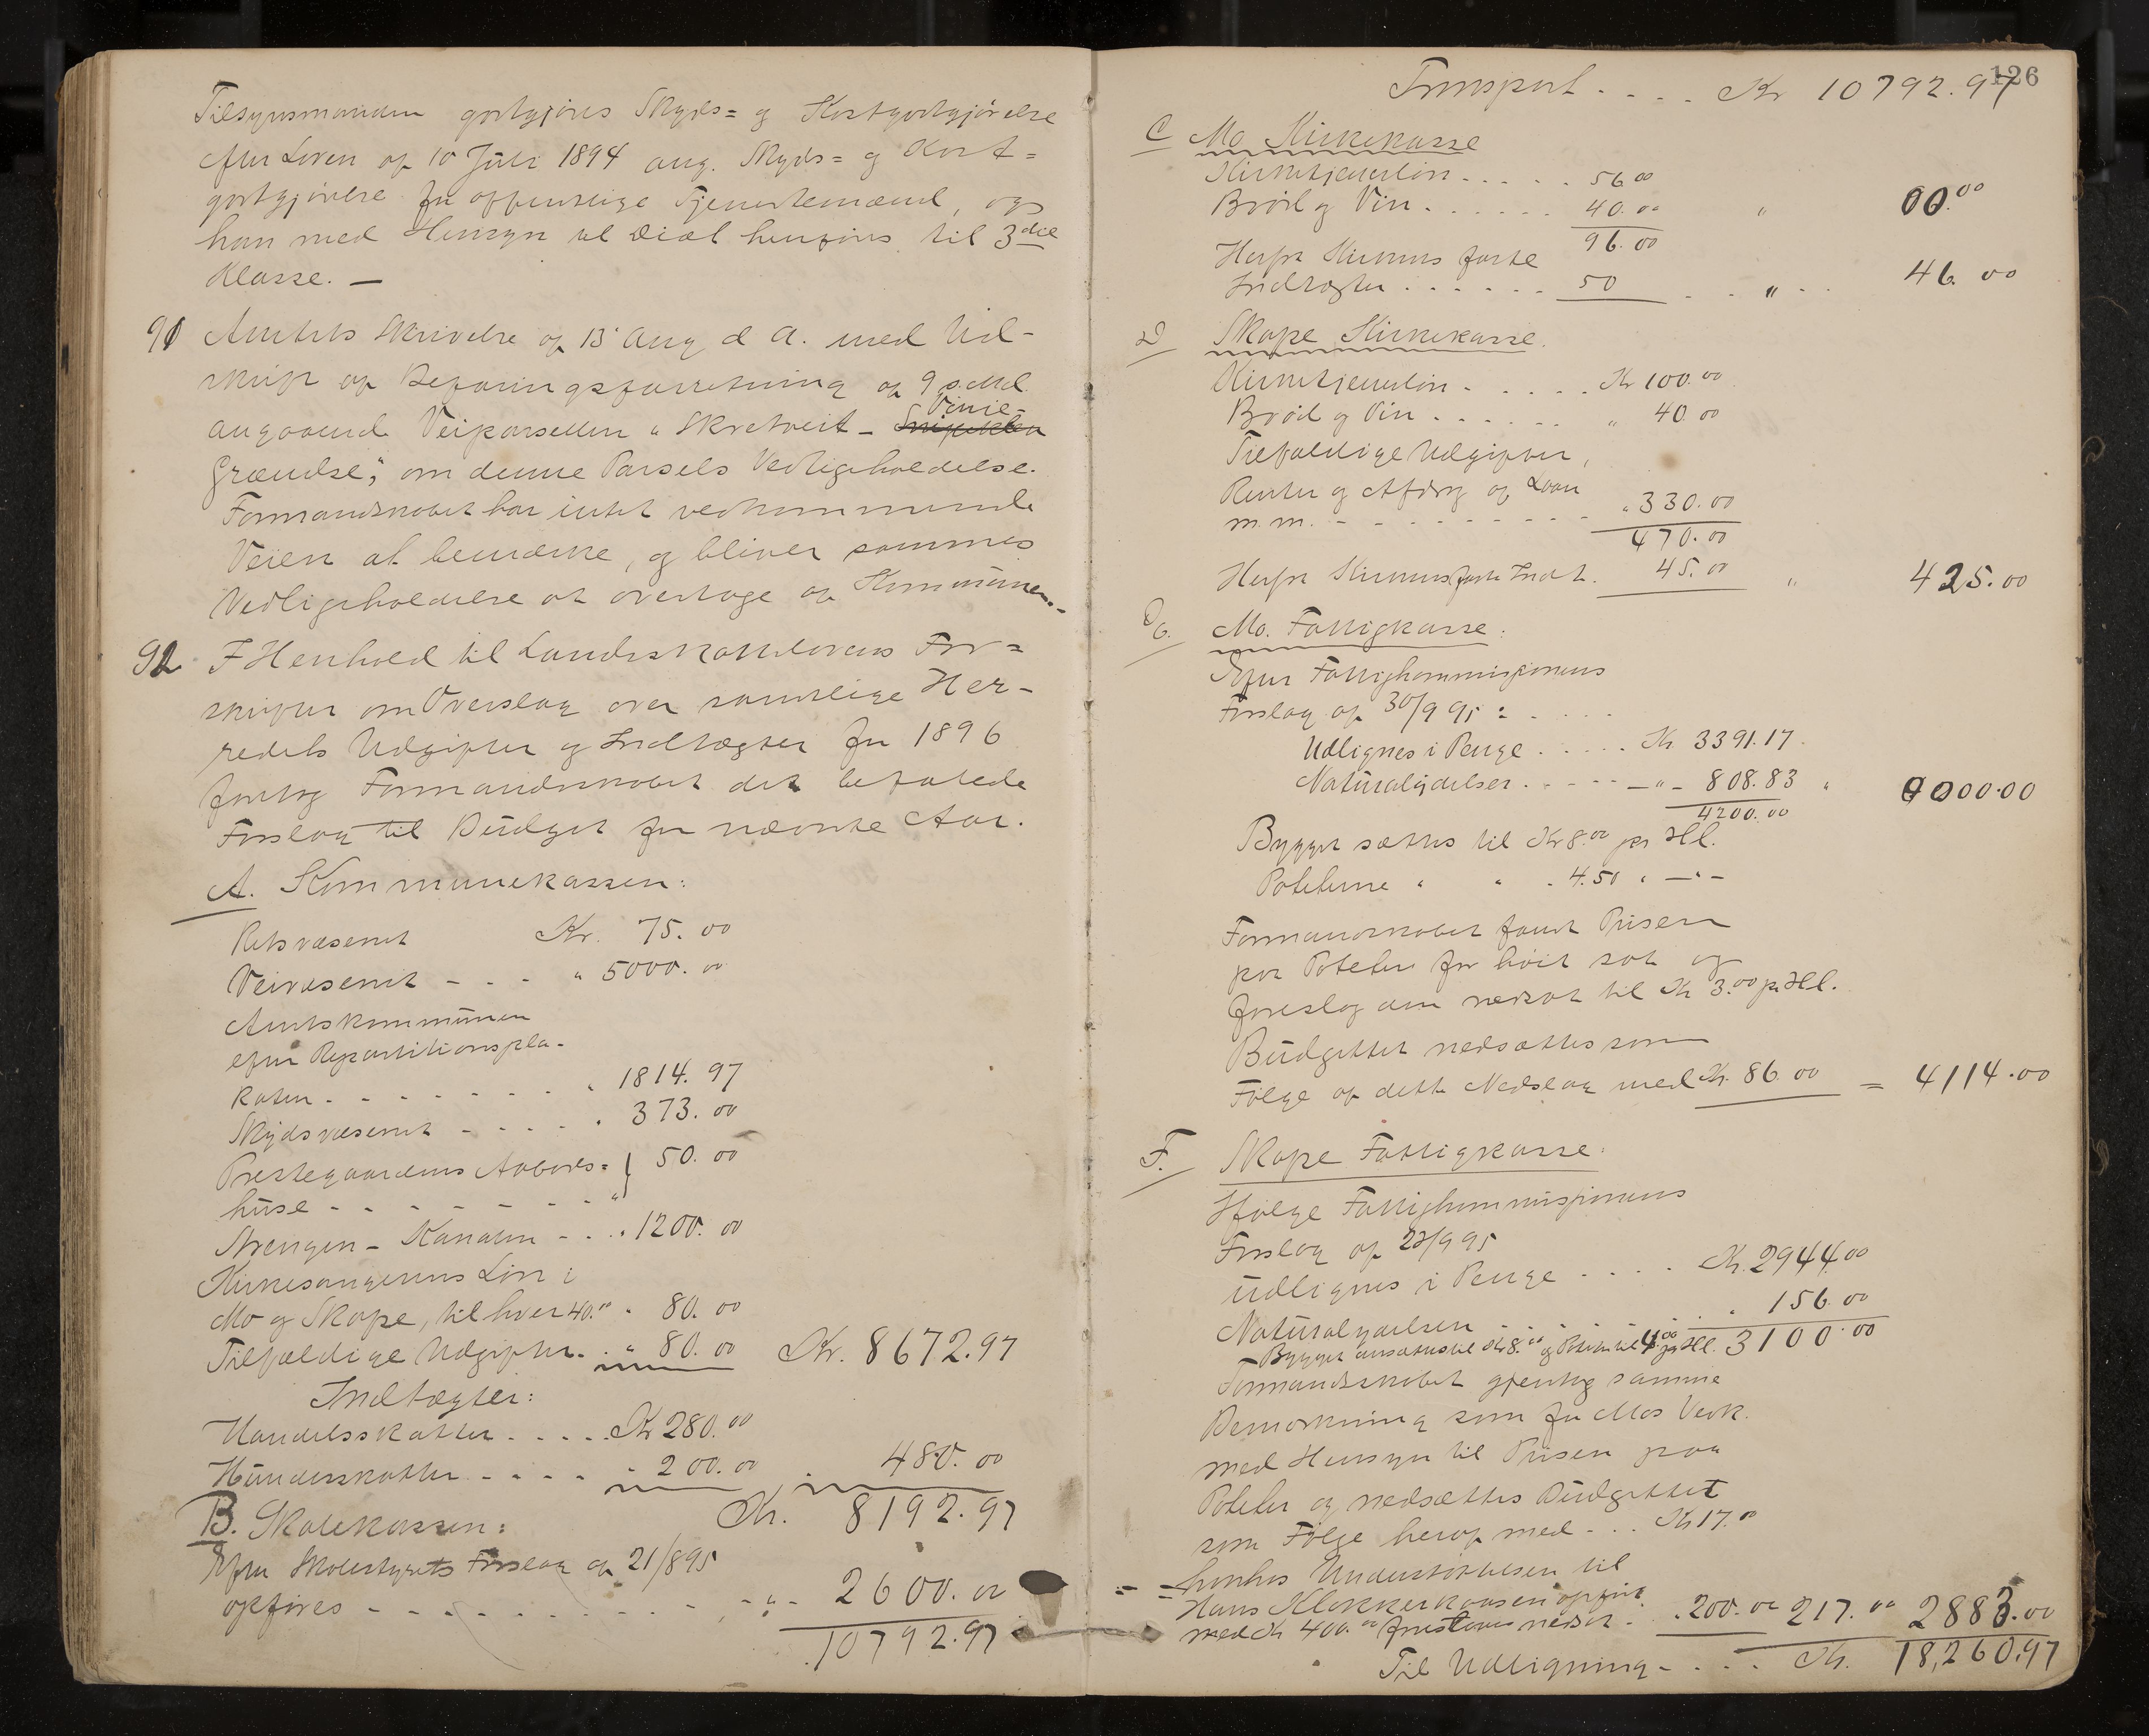 Tilsynsmanden godtgjöres Skyds= og Kostgodtgjörelse
efter Loven af 10 Juli 1894 ang. Skyds= og Kost=
godtgjörelse for offentlige Tjenestemænd, og
han med Hensyn til Diæt henföres til 3die
Klasse. —
91 Amtets Skrivelse af 13 Aug d A. med Ud-
skrift af Befaringsforretning af 9 s. Md.
angaaende Veiparsellen "Skretveit - Vinie-
Grændse", om denne Parsels Vedligeholdelse.
Formandskabet har intet vedkommende
Veien at bemærke, og bliver sammes
Vedligeholdelse at overtage af Kommunen.-
92 I Henhold til Landsskattelovens For=
skrifter om Overslag over samtlige Her-
redets Udgifter og Indtægter for 1896
foretog Formandskabet det befalede
Forslag til Budget for nævnte Aar.
A. Kommunekassen:
Retsvæsenet Kr. 75.00
Veivæsenet - - - " 5000.00
Amtskommunen
efter Repartitionspla-
katen - - - - - - " 1814.97
Skydsvæsenet - - - - " 373.00
Prestegaardens Aabods= } 50.00
huse - - - - - - - "
Strengen - Kanalen - - " 1200.00
Kirkesangerens Lön i
Mo og Skafse, til hver 40.00 " 80.00
Tilfældige Udgifter. . " 80.00 Kr. 8672.97
Indtægter:
Handelsskatter . . . . Kr 280.00
Hundeskatter - - - - " 200.00 " 480.00
Kr. 8192.97
B. Skolekassen:
Efter Skolestyrets Forslag af 21/8 95
opföres - - - - - - - - - " - 2600.00
10792.97
126
Transport . . . . Kr 10792.97
C Mo Kirkekasse
Kirketjenerlön . . . . . 56.00
Bröd og Vin . . . . . . 40.00 " 00.00
96.00
Herfra Kirkens faste
Indtægter . . . . . . 50 . . " . . 46.00
D Skafse Kirkekasse.
Kirketjenerlön - . . . . Kr 100.00
Bröd og Vin . . . . . . " 40.00
Tilfældige Udgifter,
Renter og Afdrag af Laan
m.m. - - - - - - - - - " 330.00
470.00
Herfra Kirkens faste Indt. 45.00 " 425.00
Mo. Fattigkasse:
Efter Fattigkommissionens
Forslag af 30/9 95 : . . . .
Udlignes i Penge . . . . . Kr. 3391.17
Naturalydelser. - - - - — " - 808.83 "
4200.00
Bygget sættes til Kr 8.00 pr Hl.
Poteterne " " " 4.50 " — " -
Formandskabet fandt Prisen
paa Poteter for höit sat og
foreslog den nedsat til Kr 3.00 pr Hl.
Budgettet nedsættes som
Fölge af dette Nedslag med Kr. 86.00 = 4114.00
F. Skafse Fattigkasse:
Ifölge Fattigkommissionens
Forslag af 23/9 95
udlignes i Penge . . . . Kr. 2944.00
Naturalydelsen . . . . . " 156.00
Bygget ansættes til Kr 8.00 og Poteter til 4.00 pr Hl. 3100.00
Formandskabet gjentog samme
Bemærkning som for Mos Vedk.
med Hensyn til Prisen paa
Poteter og nedsættes Budgettet
som Fölge heraf med - . . Kr 17.00
- = hvorhos Understöttelsen til
Hans Klokkerkaasen opfört
med Kr 400.00 foreslaaes nedsat - . 200.00 217.00 2883.00
Til Udligning - . . . Kr. 18,260.97